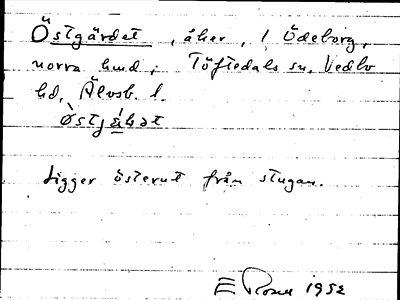 Östgärdet, åker, i Ödeborg,
norra hmd; Töftedals sn, Vedbo
hd, Älvsb. l.
Ligger österut från stugan.
E Rosen 1952